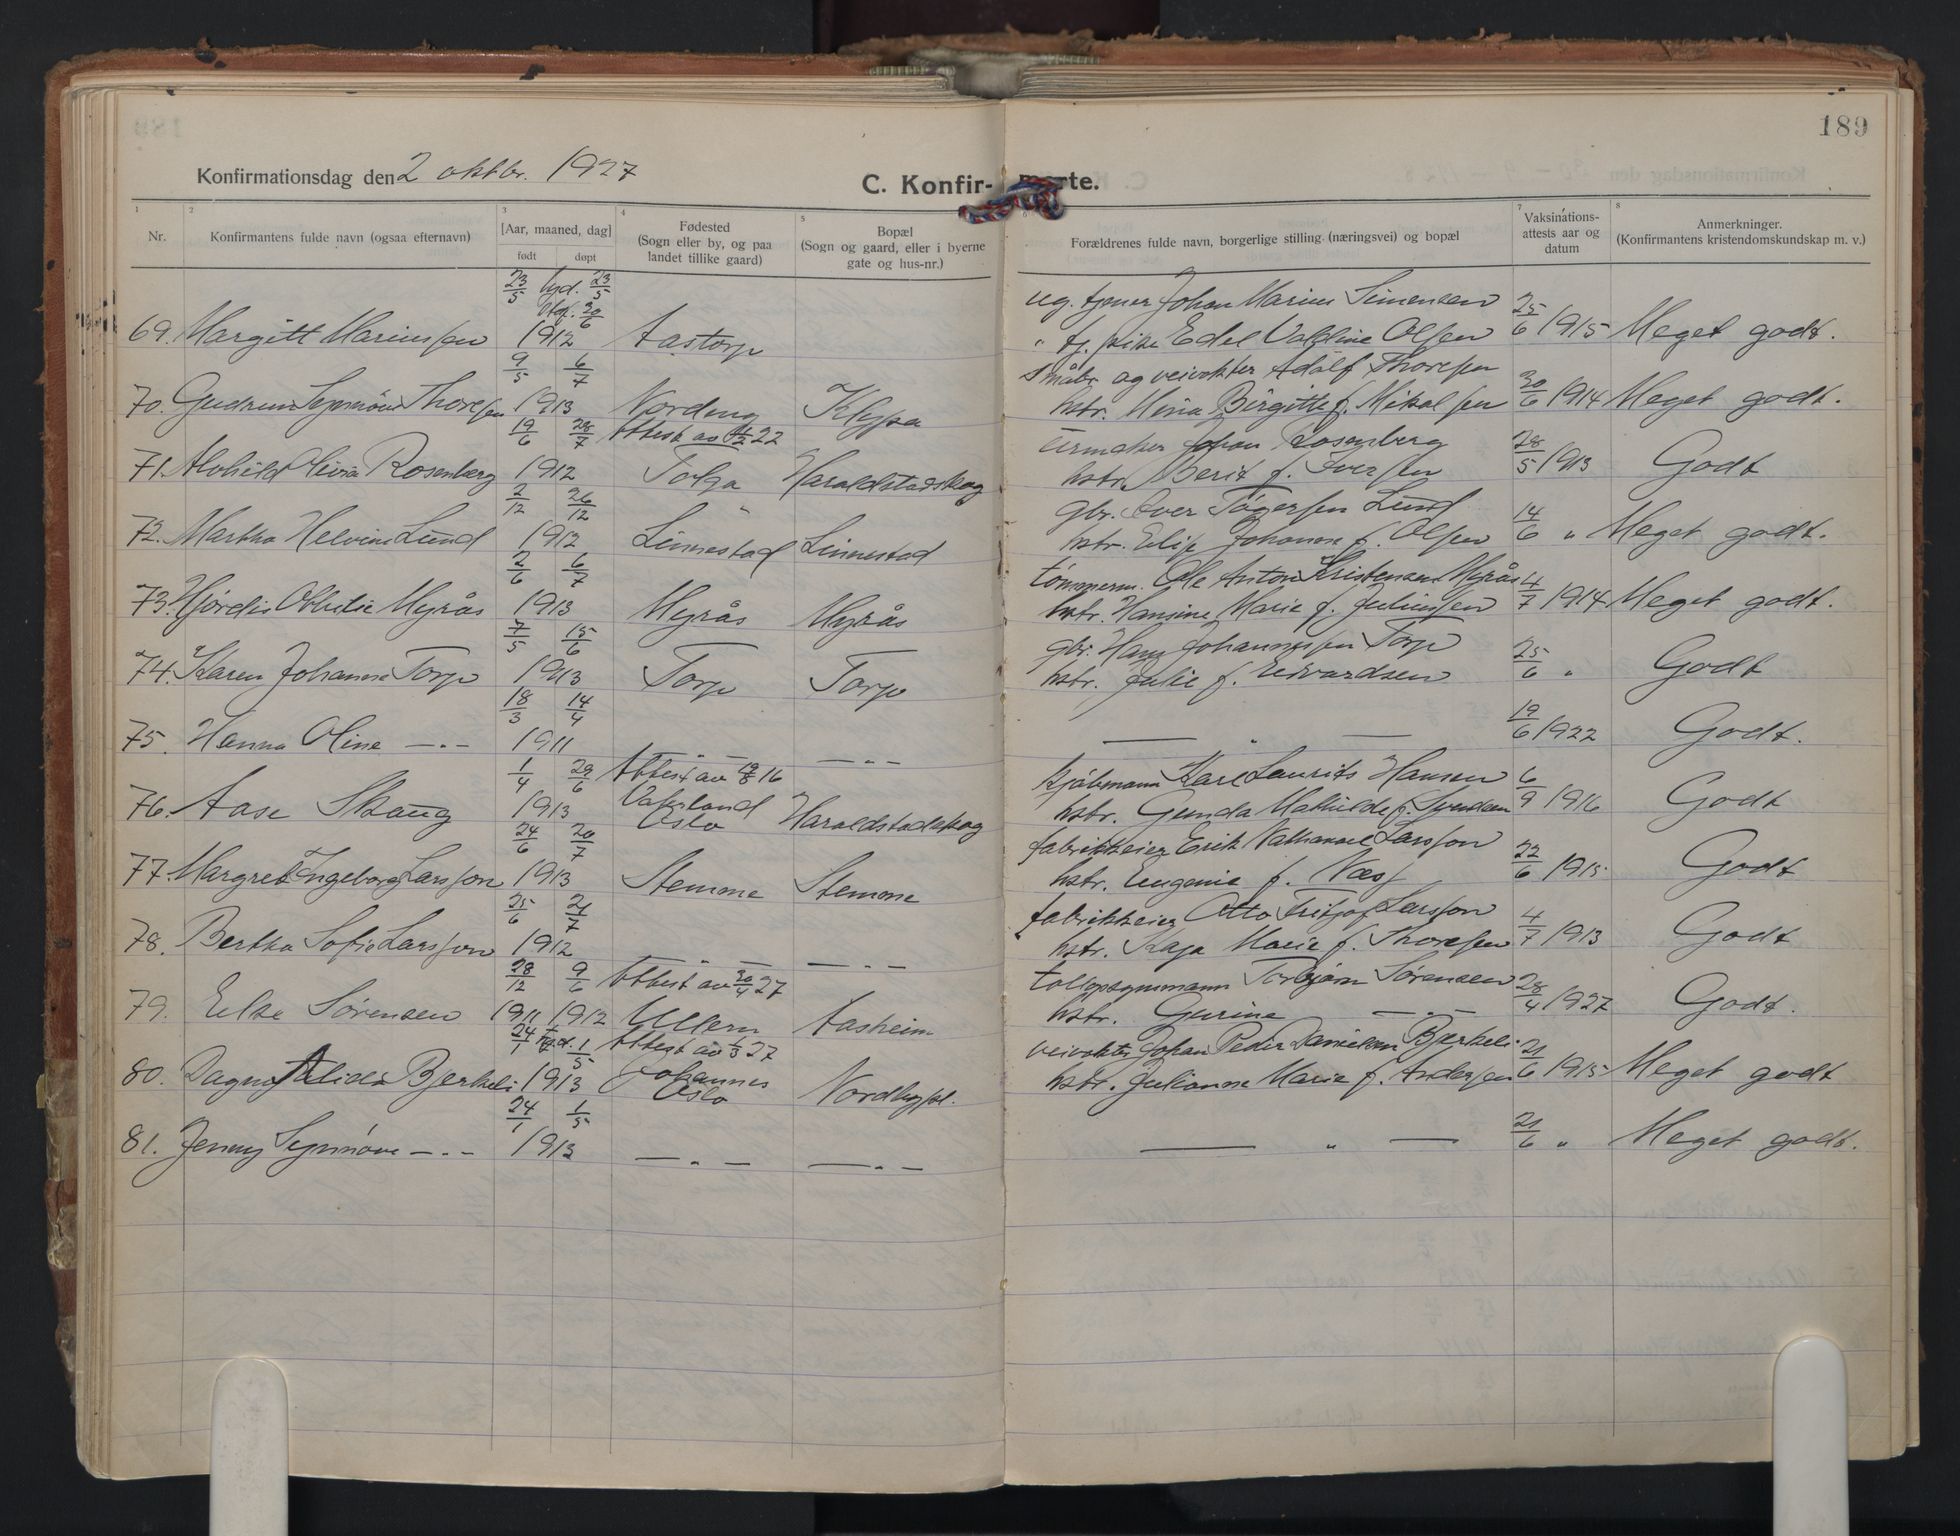 189
Konfirmationsdag den 2 oktbr. 1927
C. Konfir- merte.
1 2 3 4 5 6 7 8
Nr. Konfirmantens fulde navn (ogsaa efternavn) [Aar, maaned, dag] født døpt Fødested (Sogn eller by, og paa landet tillike gaard) Bopæl (Sogn og gaard, eller i byerne gate og hus-nr.) Forældrenes fulde navn, borgerlige stilling (næringsvei) og bopæl Vaksinations-attests aar og datum Anmerkninger. (Konfirmantens kristendomskundskap m. v.)
23/5 hjd. 23/5 ug. tjener Johan Marius Simensen
Stf. 30/6
69. Margitt Mariussen 1912 Aastorp " tj. pike Edel Valdine Olsen 25/6 1915 Meget godt.
9/5 6/7 Småbr. og veivokter Adolf Thoresen
70. Gudrun Synnöve Thoresen 1913 Nordeng Klypa hstr. Mina Birgitte f. Mikalsen 30/6 1914 Meget godt.
19/6 28/7 Attest av 22 Urmaker Johan Rosenberg
71. Alvhild Olivia Rosenberg 1912 Torpa Haraldstadskog hstr. Berit f. Iversen 28/5 1913 Godt
2/12 26/12 gbr. Iver Tögersen Lund
72. Martha Helvine Lund 1912 Linnestad Linnestad hstr. Elise Johanne f. Olsen 14/6 " Meget godt.
2/6 6/7 tömmerm. Ole Anton Kristensen Myrås
73. Hjördis Othilie Myrås 1913 Myrås Myrås hstr. Hansine Marie f. Juliussen 4/7 1914 Meget godt.
7/5 15/6 gbr. Hans Johannessen Torp
74. Karen Johanne Torp 1913 Torp Torp hstr. Julie f. Edvardsen 25/6 " Godt
18/3 14/4
75. Hanna Oline —"— 1911 —"— —"— — " — 19/6 1922 Godt.
1/4 29/6 Attest av 19/8 16 Kjöbmann Karl Laurits Hansen
76. Aase Skaug 1913 Vaterland Oslo Haraldstadskog hstr. Gunda Mathilde f. Svendsen 6/9 1916 Godt
24/6 20/7 fabrikkeier Erik Nathanael Larsson
77. Margret Ingeborg Larsson 1913 Stemme Stemme hstr. Eugenie f. Næss 22/6 1915 Godt
25/6 21/7 fabrikkeier Otto Fritjof Larsson
78. Bertha Sofie Larsson 1912 —"— —"— hstr. Kaja Marie f. Thoresen 4/7 1913 Godt
28/12 9/6 Attest av 30/4 27 tollopsynsmann Torbjörn Sörensen
79. Else Sörensen 1911 1912 Ullern Aasheim hstr. Gurine —"— 28/4 1927 Godt.
24/1 1/5 Attest av 1/3 27 veivokter Johan Peder Danielsen Bjerkeli
80. Dagny Alida Bjerkeli 1913 Johannes Oslo Nordbypl. hstr. Julianne Marie f. Andersen 21/6 1915 Meget godt
24/1 1/5
81. Jenny Synnöve —"— 1913 —"— —"— — " — 21/6 " Meget godt.